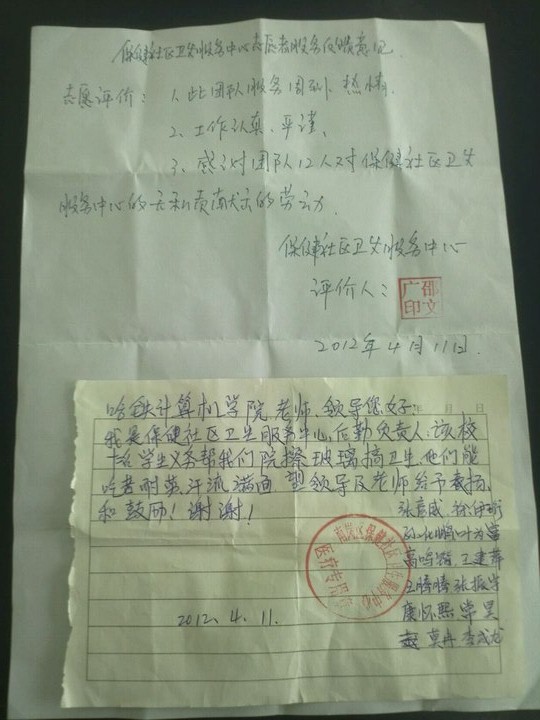 保健社区卫生服务中心志愿者服务反馈意见
志愿评价：1、此团队服务周到、热情.
2、工作认真、严谨.
3、感谢团队12人对保健社区卫生
服务中心的无私贡献的劳动.
保健社区卫生服务中心
评价人：
邵文广印
2012年4月11日.
月 日
哈铁计算机学院老师、领导您好：
我是保健社区卫生服务中心后勤负责人.该校
十名学生义务帮我们院擦玻璃搞卫生.他们能
吃苦耐劳汗流满面 望领导及老师给予表扬
和鼓励！谢谢！
高鸣 王建萍
王腾腾 张振宇
康怀熙 常昊
莫冉 李成龙
医疗专用章
2012.4.11.